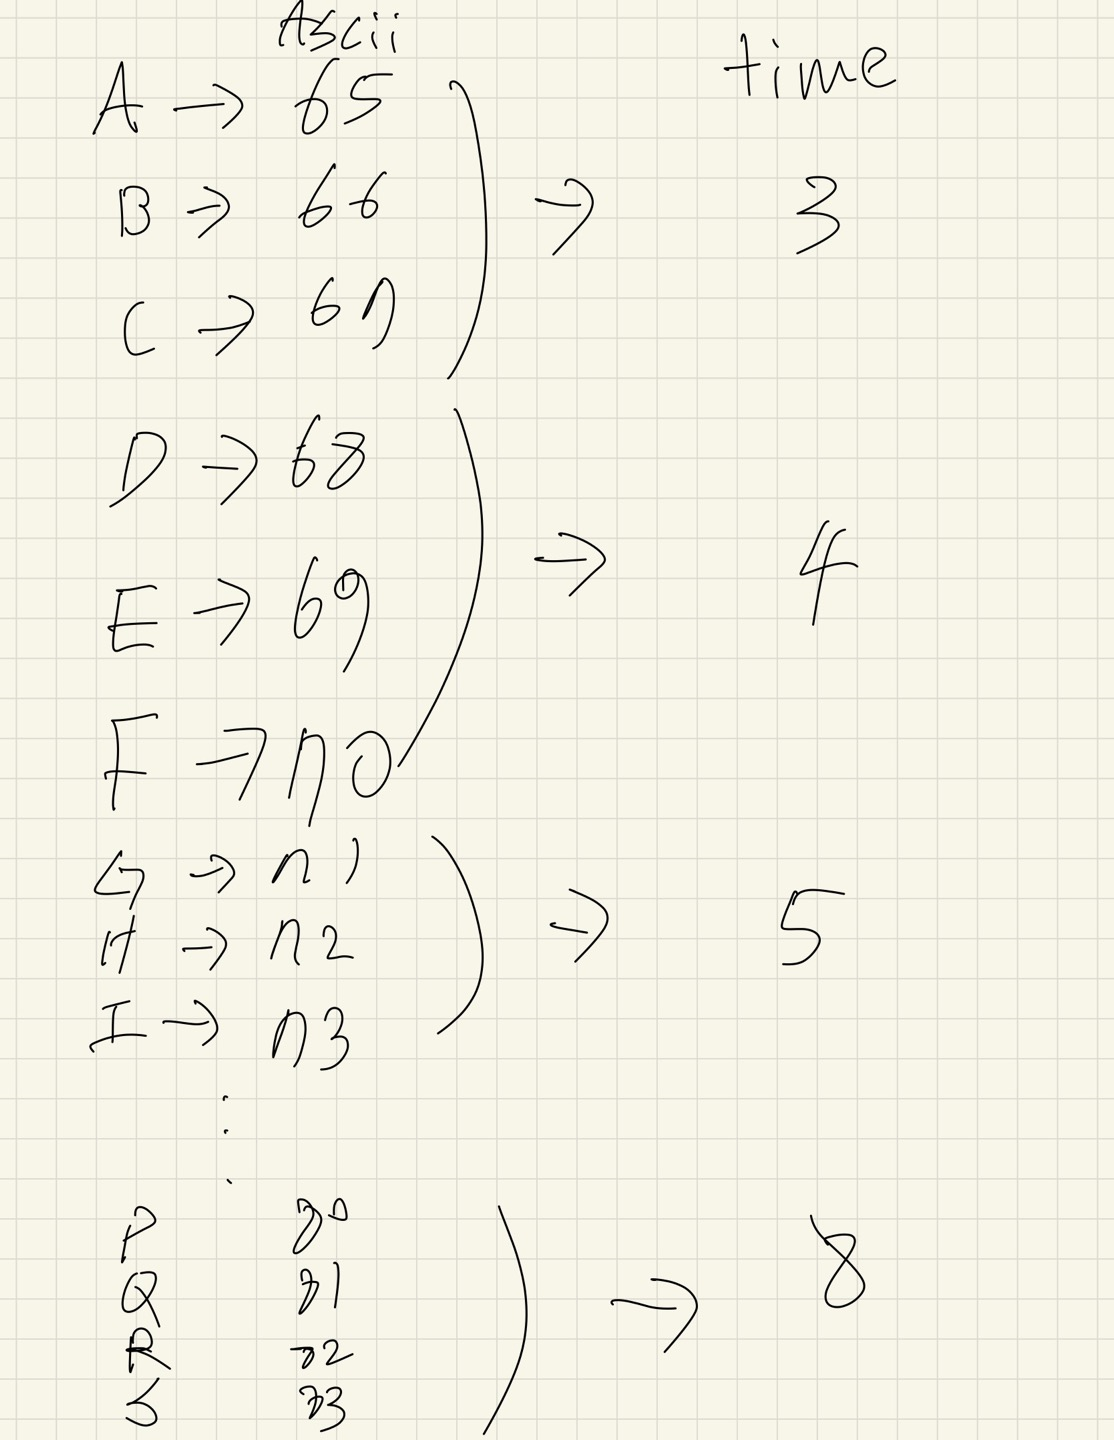 Ascii
time
A → 65
B → 66
C → 67
→ 3
D → 68
E → 69
F → 70
→ 4
G → 71
H → 72
I → 73
→ 5
⋮
P 80
Q 81
R 82
S 83
→ 8